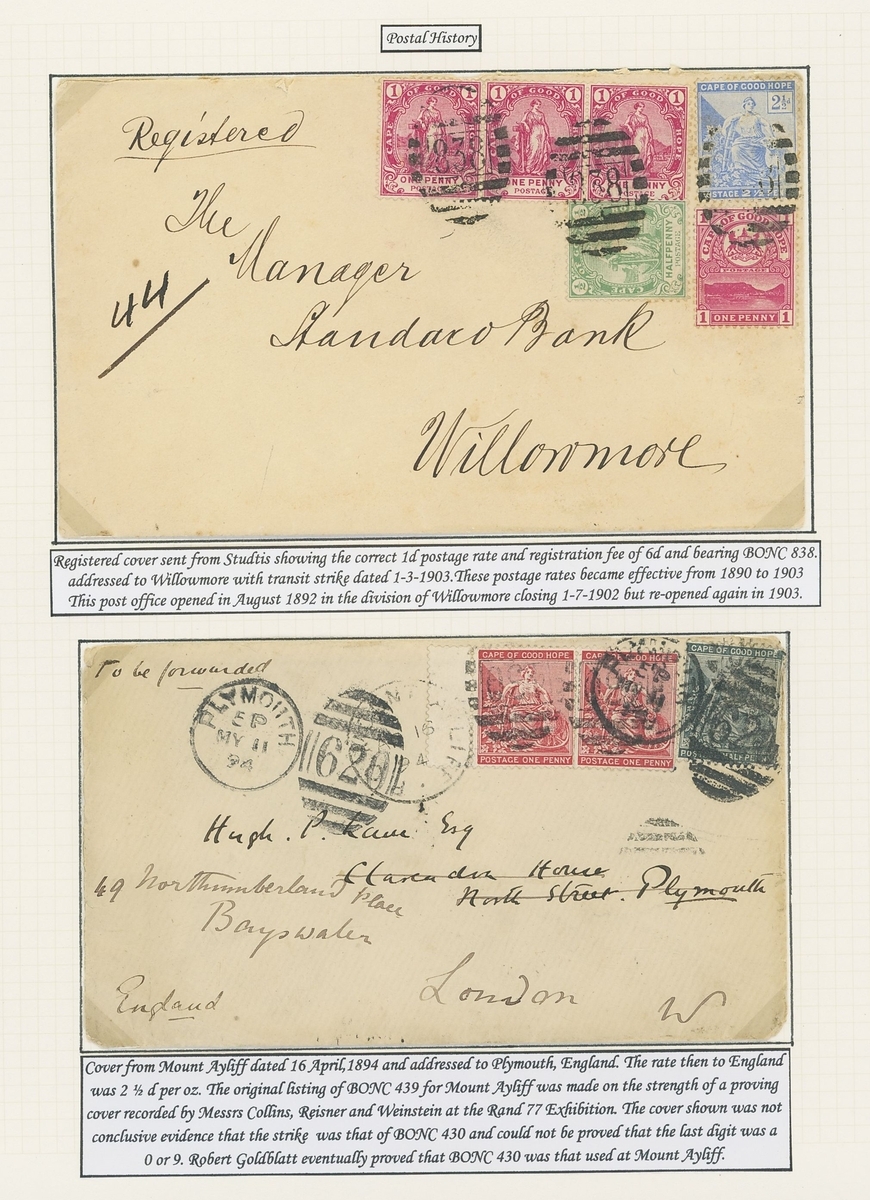 Postal History
Registered
The
Manager
Standard Bank
Willowmore
44
1 OF GOOD 1
HOPE
ONE PENNY
POSTAGE
1 OF GOOD
ONE PENNY
POSTAGE
1 OF GOOD 1
HOPE
ONE PENNY
POSTAGE
838
838
CAPE OF GOOD HOPE
2½d
POSTAGE 2½
HALFPENNY
POSTAGE
CAPE
CAPE OF GOOD HOPE
POSTAGE
1 ONE PENNY 1
Registered cover sent from Studtis showing the correct 1d postage rate and registration fee of 6d and bearing BONC 838.
addressed to Willowmore with transit strike dated 1-3-1903.These postage rates became effective from 1890 to 1903
This post office opened in August 1892 in the division of Willowmore closing 1-7-1902 but re-opened again in 1903.
To be forwarded
PLYMOUTH
EP
MY 11
94
620
16
94
CAPE OF GOOD HOPE
POSTAGE ONE PENNY
CAPE OF GOOD HOPE
POSTAGE ONE PENNY
CAPE OF GOOD HOPE
Hugh. P. Esq
Clarendon House
North Street. Plymouth
49 Northumberland Place
Bayswater
London
W
England
Cover from Mount Ayliff dated 16 April,1894 and addressed to Plymouth, England. The rate then to England
was 2 ½ d per oz. The original listing of BONC 439 for Mount Ayliff was made on the strength of a proving
cover recorded by Messrs Collins, Reisner and Weinstein at the Rand 77 Exhibition. The cover shown was not
conclusive evidence that the strike was that of BONC 430 and could not be proved that the last digit was a
0 or 9. Robert Goldblatt eventually proved that BONC 430 was that used at Mount Ayliff.